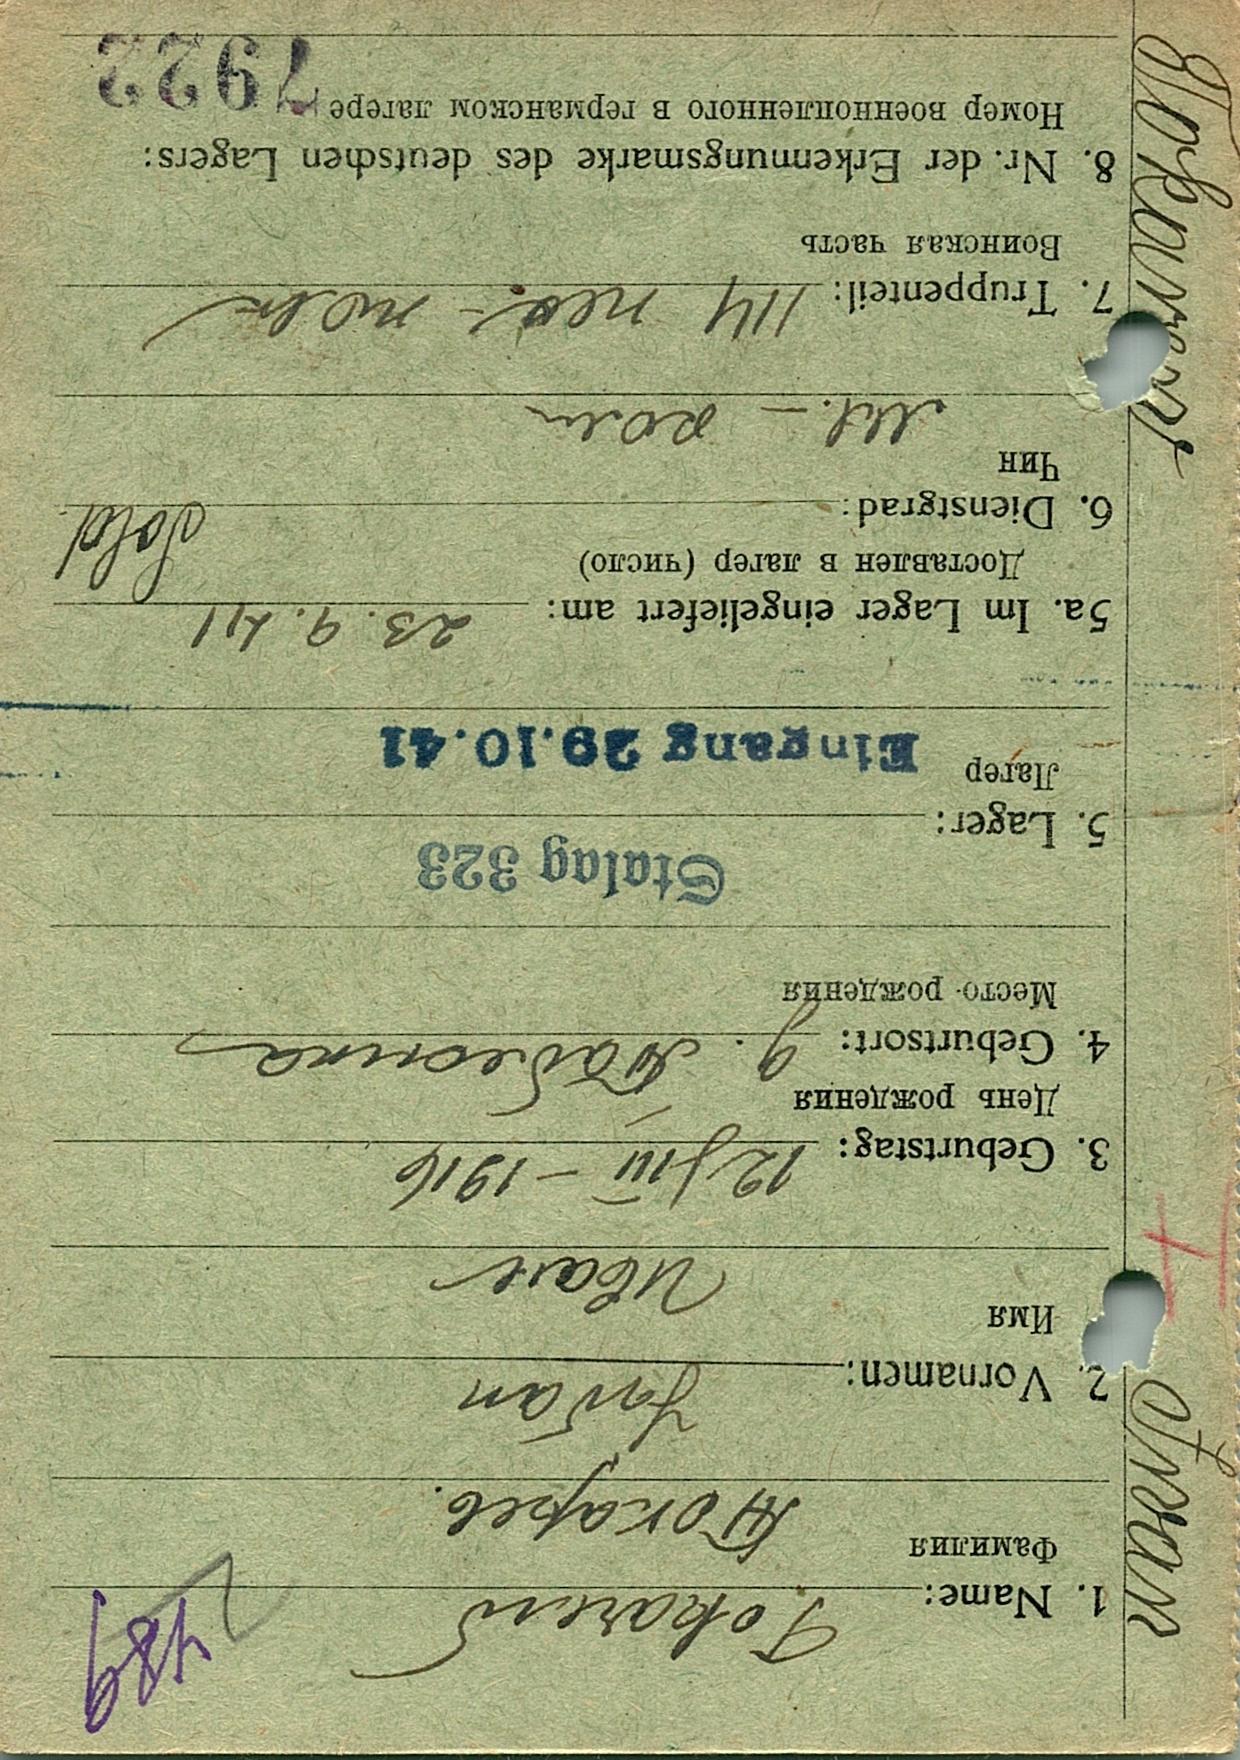 489
1. Name: Токарев
Фамилия
Токарев.
2. Vornamen: Jwan
Имя
Иван
3. Geburtstag: 12/III – 1916
День рождения
4. Geburtsort: д.
Место рождения
Stalag 323
5. Lager:
Лагер
Eingang 29.10.41
5a. Im Lager eingeliefert am: 23.9.41
Доставлен в лагер (число)
6. Dienstgrad: Sold.
Чин
7. Truppenteil: 114
Воинская часть
8. Nr. der Erkennungsmarke des deutschen Lagers:
Номер военнопленного в германском лагере 7922
Iwan